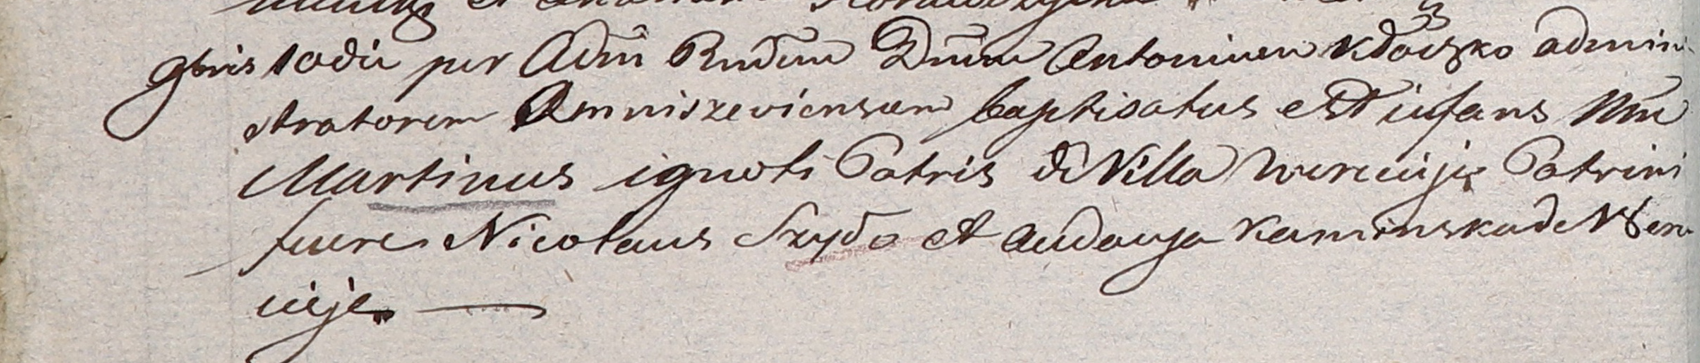 9bris 10 die per Adm Rndum Dnum Antonium Kłoczko admini
stratorem Omniszeviensem baptisatus est infans Nne
Martinus ignoti Patris de Villa Wereiije Patrini
fuere Nicolaus Szydo et Audocya Kaminska de Were
iije